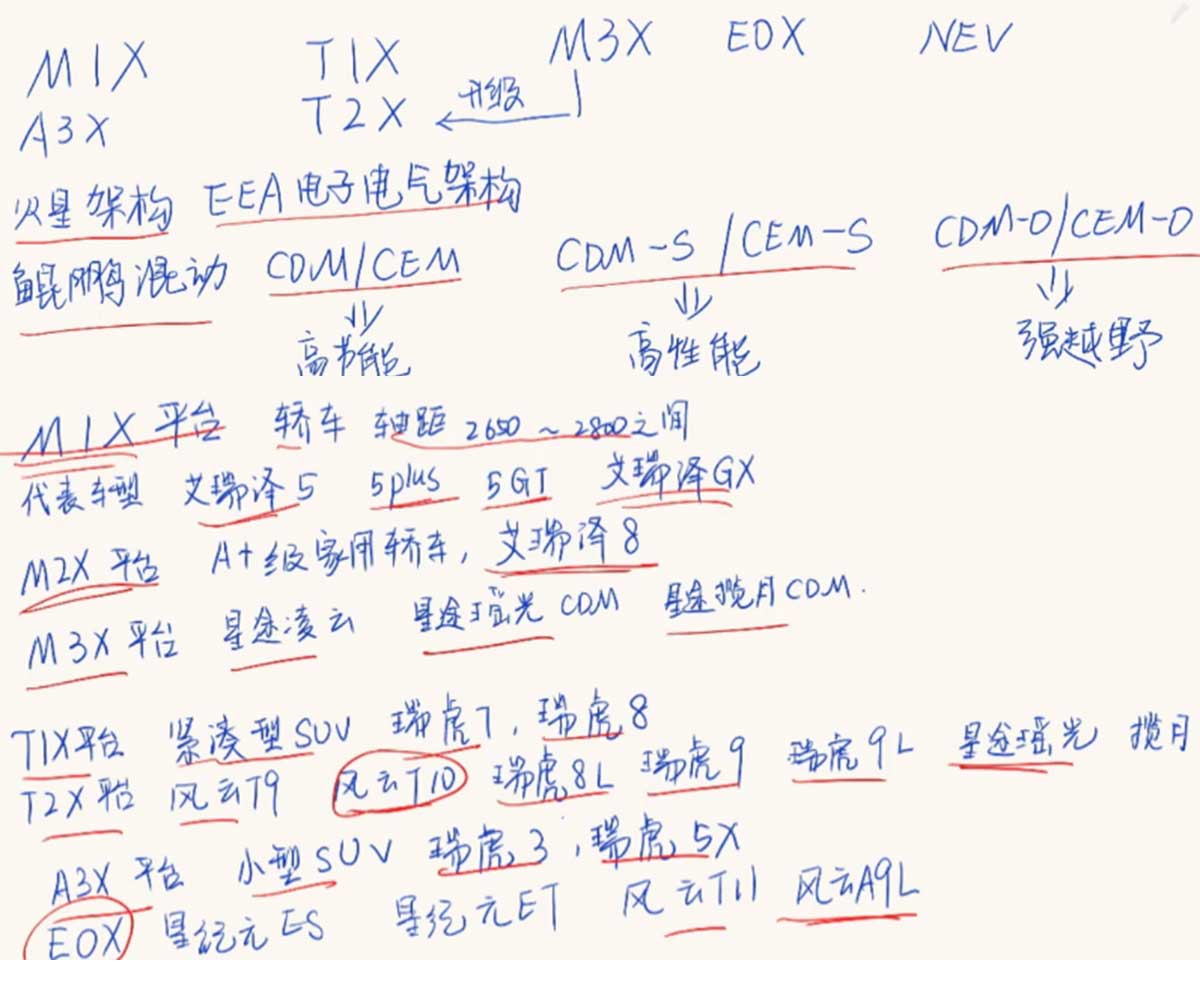 M1X T1X M3X EOX NEV
A3X T2X 升级
火星架构 EEA电子电气架构
鲲鹏混动 CDM/CEM CDM-S/CEM-S CDM-O/CEM-O
高节能 高性能 强越野
M1X平台 轿车 轴距 2650~2800之间
代表车型 艾瑞泽5 5plus 5GT 艾瑞泽GX
M2X平台 A+级家用轿车, 艾瑞泽8
M3X平台 星途凌云 星途瑶光CDM 星途揽月CDM.
T1X平台 紧凑型SUV 瑞虎7, 瑞虎8
T2X平台 风云T9 风云T10 瑞虎8L 瑞虎9 瑞虎9L 星途瑶光 揽月
A3X平台 小型SUV 瑞虎3, 瑞虎5X
EOX 星纪元ES 星纪元ET 风云T11 风云A9L